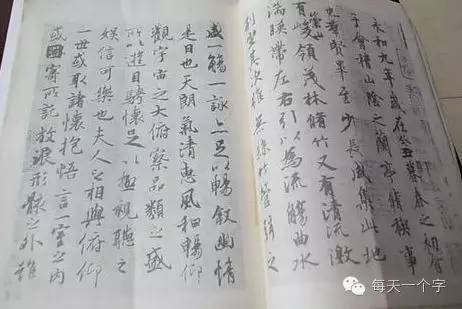 永和九年歲在癸丑暮春之初會
于會稽山陰之蘭亭脩稧事
也羣賢畢至少長咸集此地
有崇山峻領茂林脩竹又有清流激
湍暎帶左右引以為流觴曲水
列坐其次雖無絲竹管弦之
盛一觴一詠亦足以暢敘幽情
是日也天朗氣清惠風和暢仰
觀宇宙之大俯察品類之盛
所以遊目騁懷足以極視聽之
娛信可樂也夫人之相與俯仰
一世或取諸懷抱悟言一室之內
或因寄所託放浪形骸之外雖
每天一个字